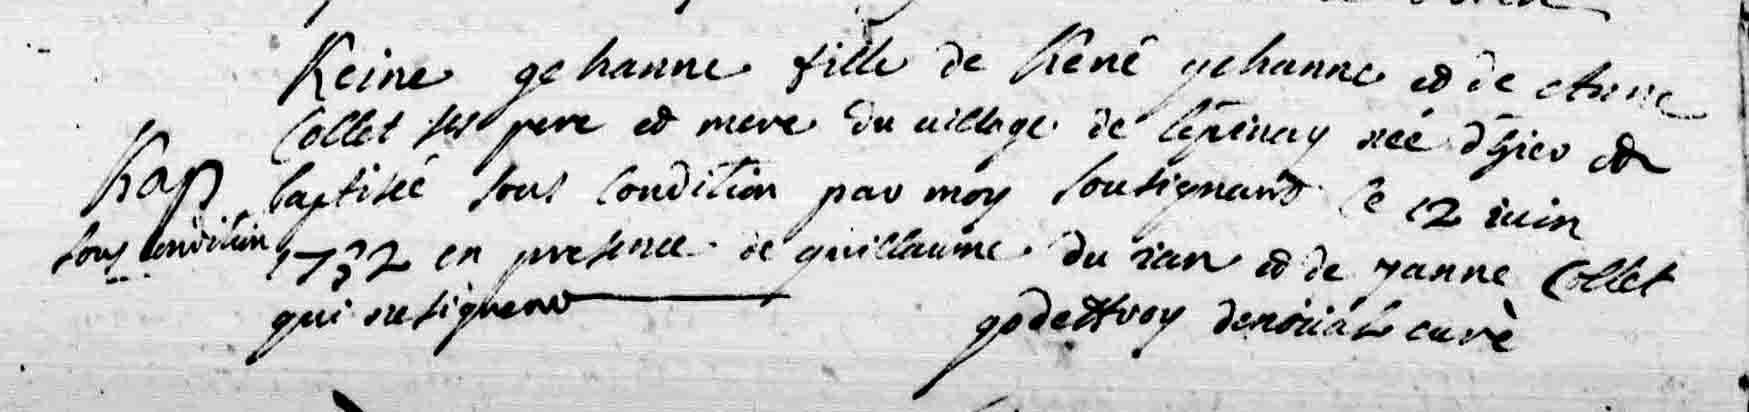 Reine gehanne fille de René gehanne et de Anne
Collet ses pere et mere du village de lepinay née d'hier et
Bap baptisée sous Condition par moy sousignant le 12 iuin
sous condition 1732 en presence de guillaume du ran et de janne Collet
qui ne signent
godeffroy denoüal curè